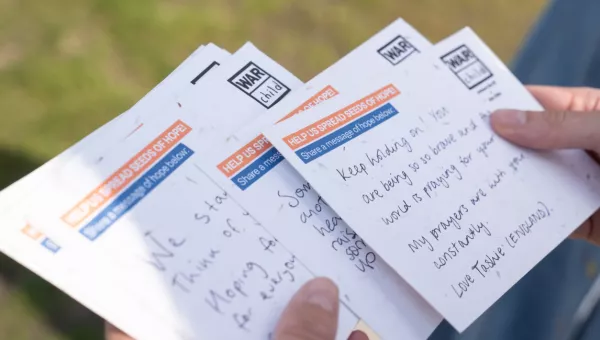 HELP US SPREAD SEEDS OF HOPE!
Share a message of hope below.
We stay
Think of y
Hoping for
for everyon
WAR
child
HELP US SPREAD SEEDS OF HOPE!
Share a
Som
ano
hea
rais
up
WAR
child
WAR
child
HELP US SPREAD SEEDS OF HOPE!
Share a message of hope below.
Keep holding on! You
are being so so brave and the
world is praying for you
My prayers are with you
constantly.
Love Tashie (ENGLAND).